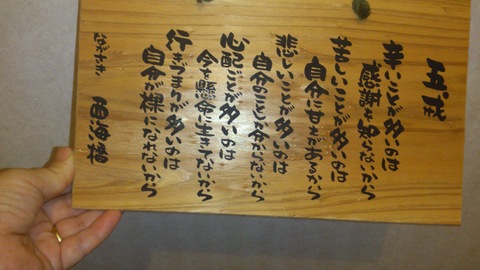 五戒
辛いことが多いのは
感謝を知らないから
苦しいことが多いのは
自分に甘えがあるから
悲しいことが多いのは
自分のことが分からないから
心配ごとが多いのは
今を懸命に生きてないから
行きづまりが多いのは
自分が裸になれないから
ながさき 西海橋